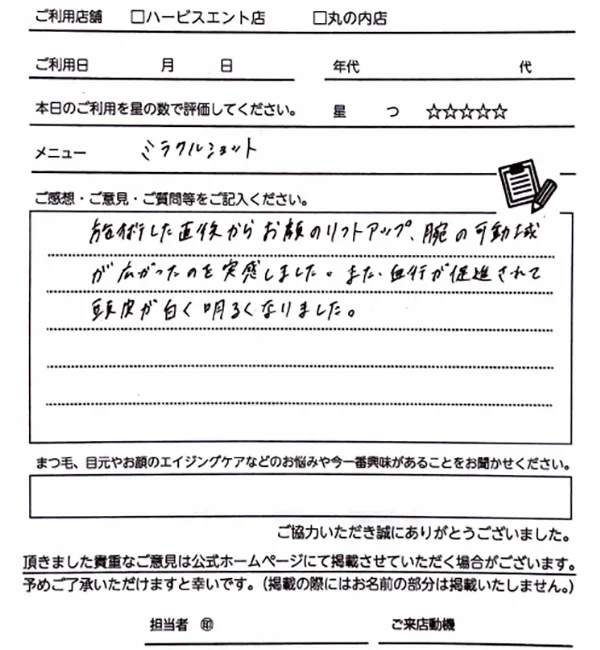 ご利用店舗 □ハービスエント店 □丸の内店
ご利用日 月 日 年代 代
本日のご利用を星の数で評価してください。 星 つ ☆☆☆☆☆
メニュー ミラクルショット
ご感想・ご意見・ご質問等をご記入ください。
施術した直後からお顔のリフトアップ、腕の可動域
が広がったのを実感しました。また、血行が促進されて
頭皮が白く明るくなりました。
まつ毛、目元やお顔のエイジングケアなどのお悩みや今一番興味があることをお聞かせください。
ご協力いただき誠にありがとうございました。
頂きました貴重なご意見は公式ホームページにて掲載させていただく場合がございます。
予めご了承いただけますと幸いです。(掲載の際にはお名前の部分は掲載いたしません。)
担当者 ㊞ ご来店動機